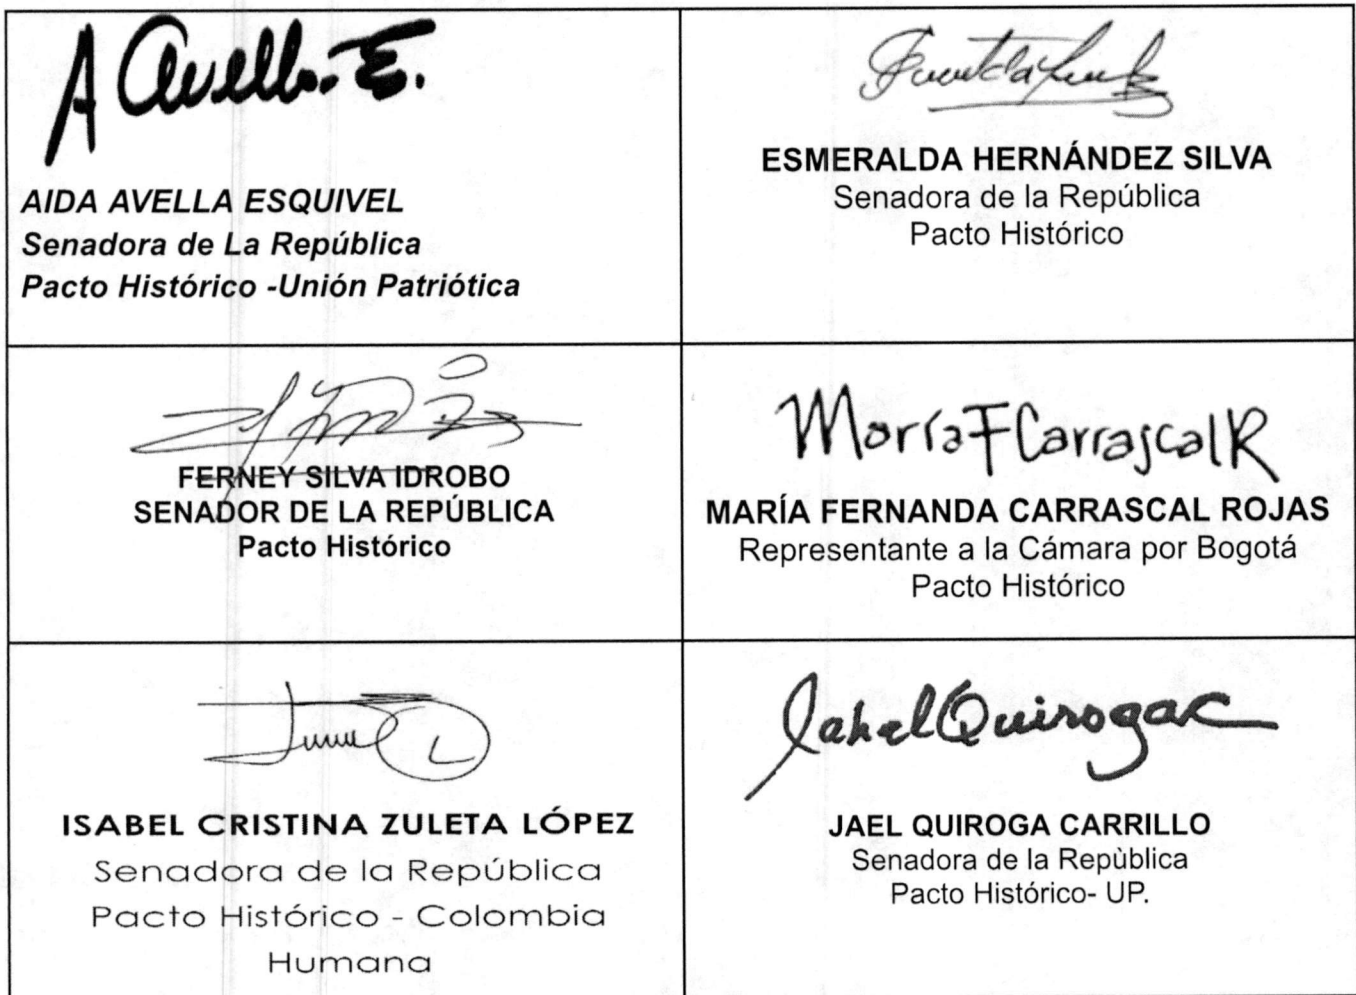 A Avella. E.
AIDA AVELLA ESQUIVEL
Senadora de La República
Pacto Histórico -Unión Patriótica
ESMERALDA HERNÁNDEZ SILVA
Senadora de la República
Pacto Histórico
FERNEY SILVA IDROBO
SENADOR DE LA REPÚBLICA
Pacto Histórico
María F Carrascal R
MARÍA FERNANDA CARRASCAL ROJAS
Representante a la Cámara por Bogotá
Pacto Histórico
ISABEL CRISTINA ZULETA LÓPEZ
Senadora de la República
Pacto Histórico - Colombia
Humana
Jahel Quiroga C
JAEL QUIROGA CARRILLO
Senadora de la Repùblica
Pacto Histórico- UP.